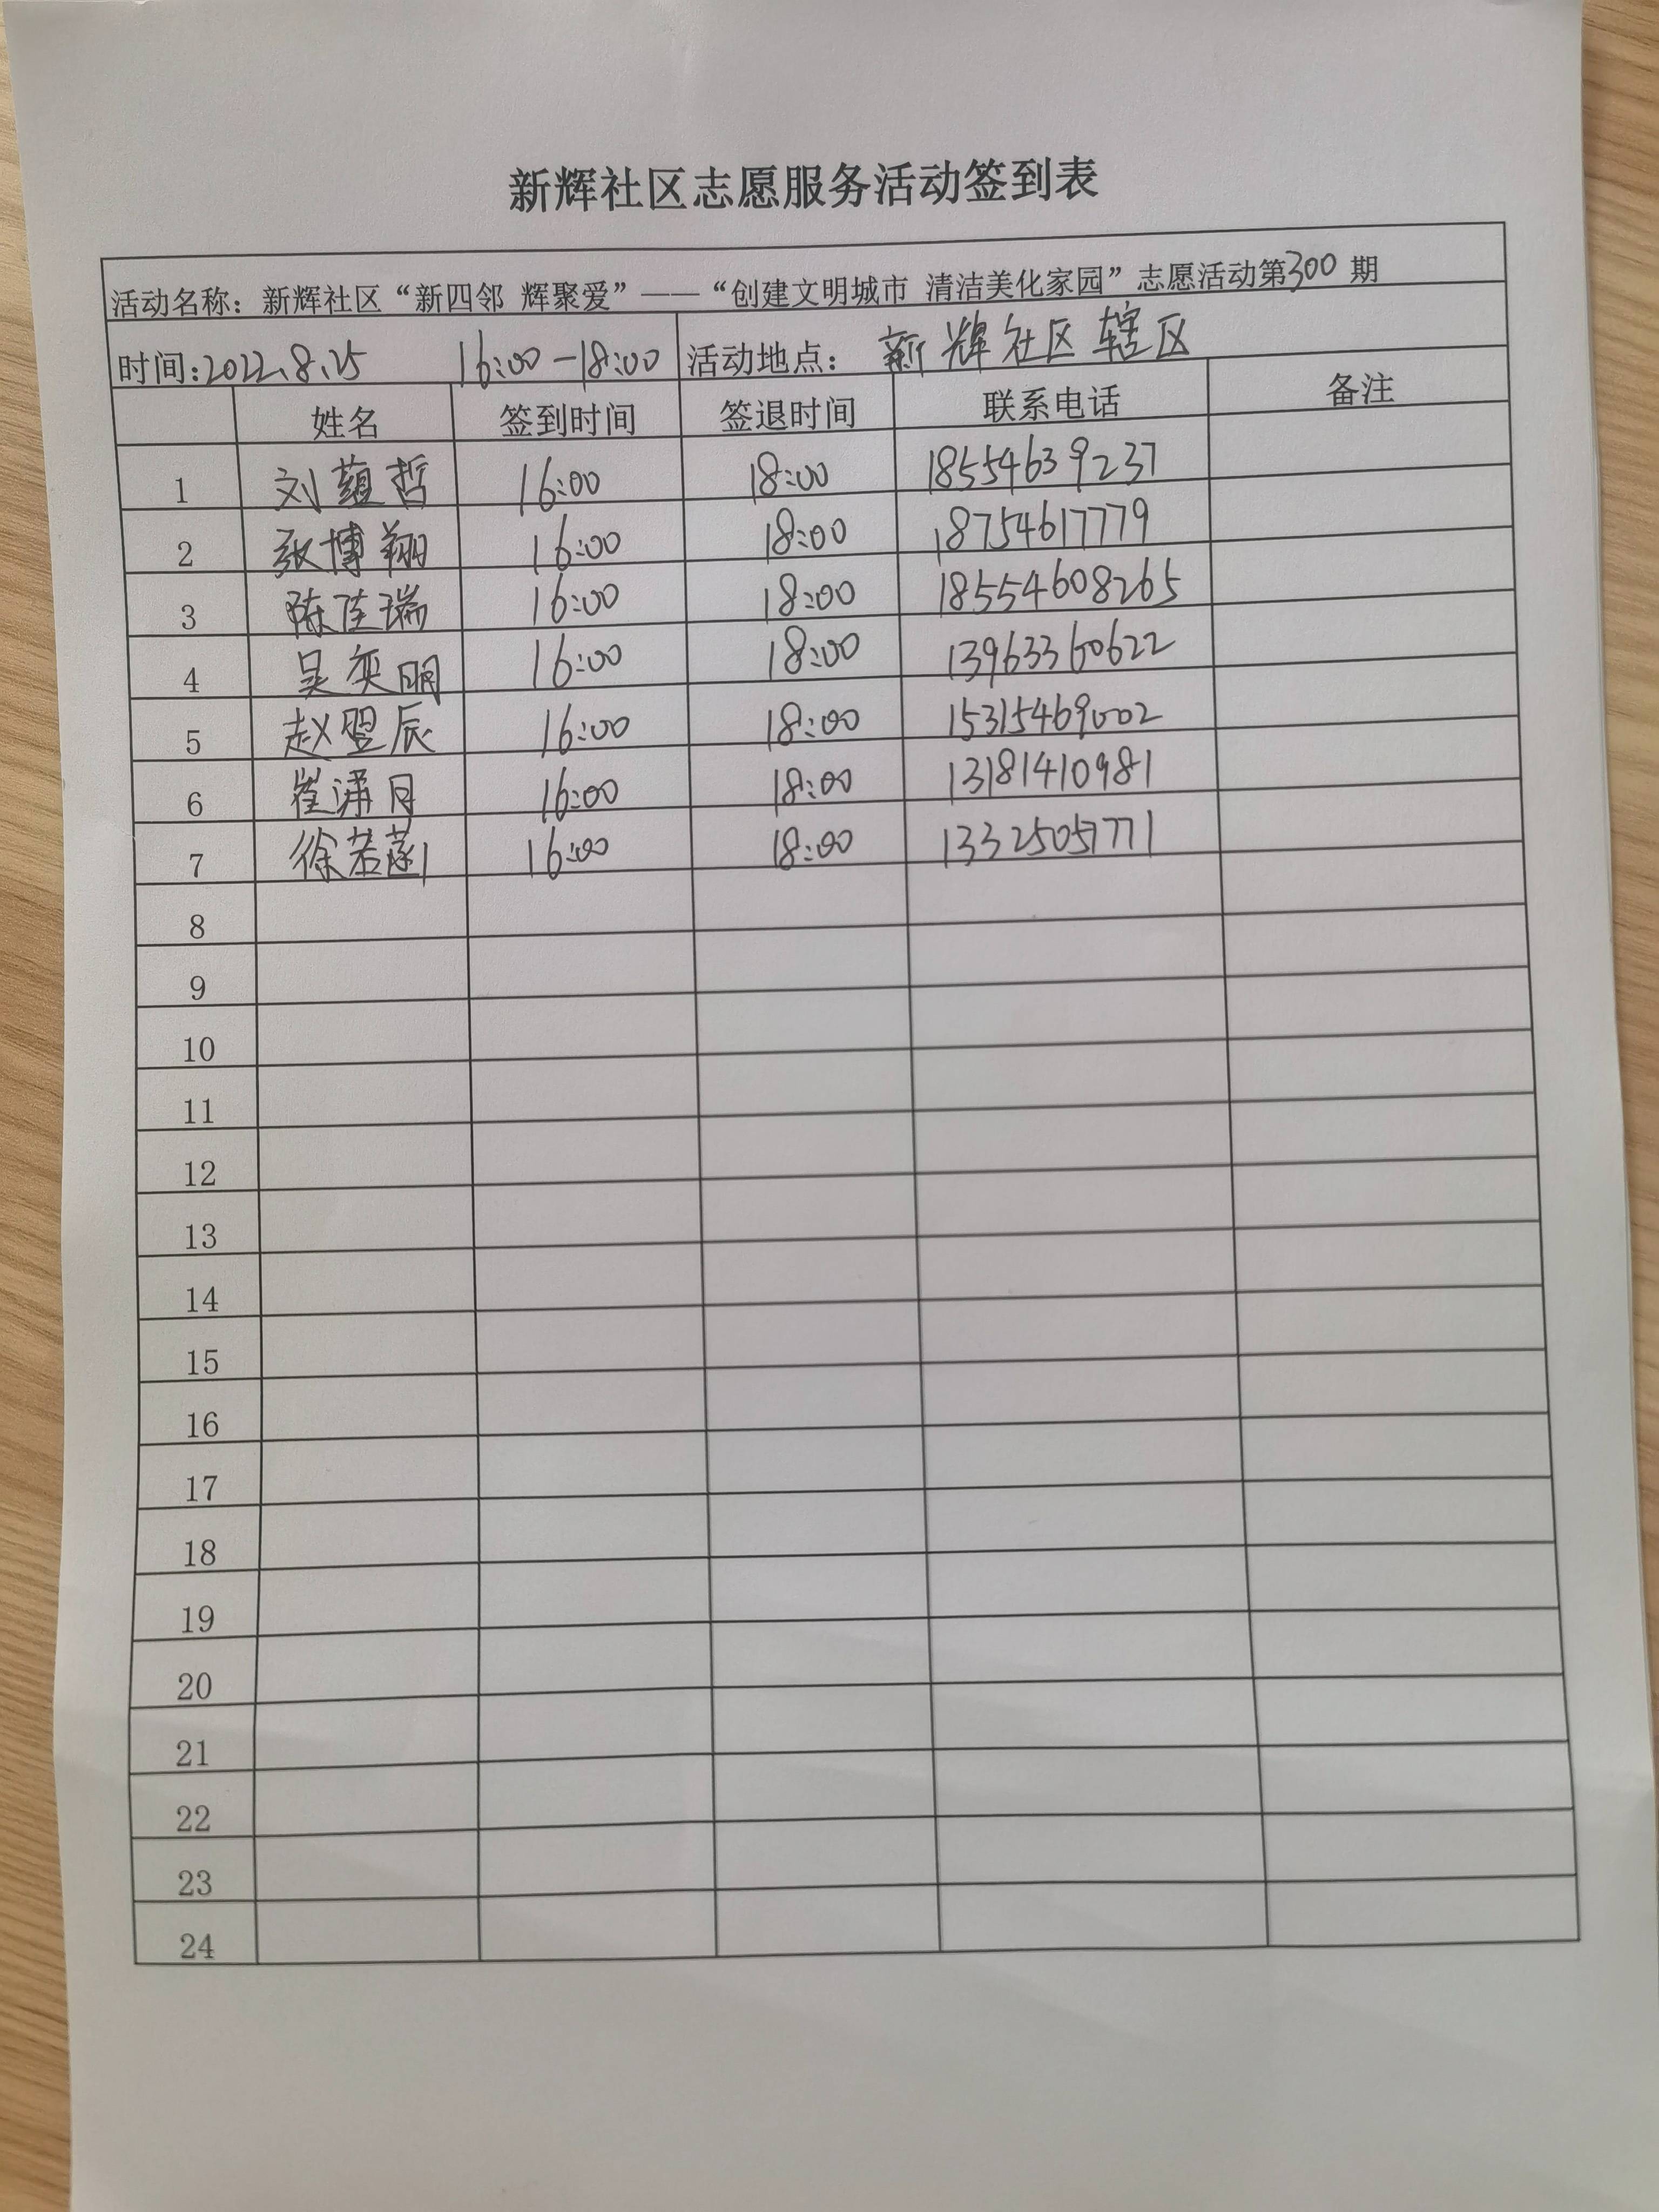 新辉社区志愿服务活动签到表
活动名称：新辉社区“新四邻 辉聚爱”——“创建文明城市 清洁美化家园”志愿活动第300期
时间：2022.8.25 16:00-18:00 活动地点：新辉社区辖区
姓名 签到时间 签退时间 联系电话 备注
1 刘蕴哲 16:00 18:00 18554639237
2 张博翔 16:00 18:00 18754617779
3 陈佳瑞 16:00 18:00 18554608265
4 吴奕明 16:00 18:00 13963360622
5 赵翌辰 16:00 18:00 15315469002
6 崔 月 16:00 18:00 13181410981
7 徐若 16:00 18:00 13325051771
8
9
10
11
12
13
14
15
16
17
18
19
20
21
22
23
24